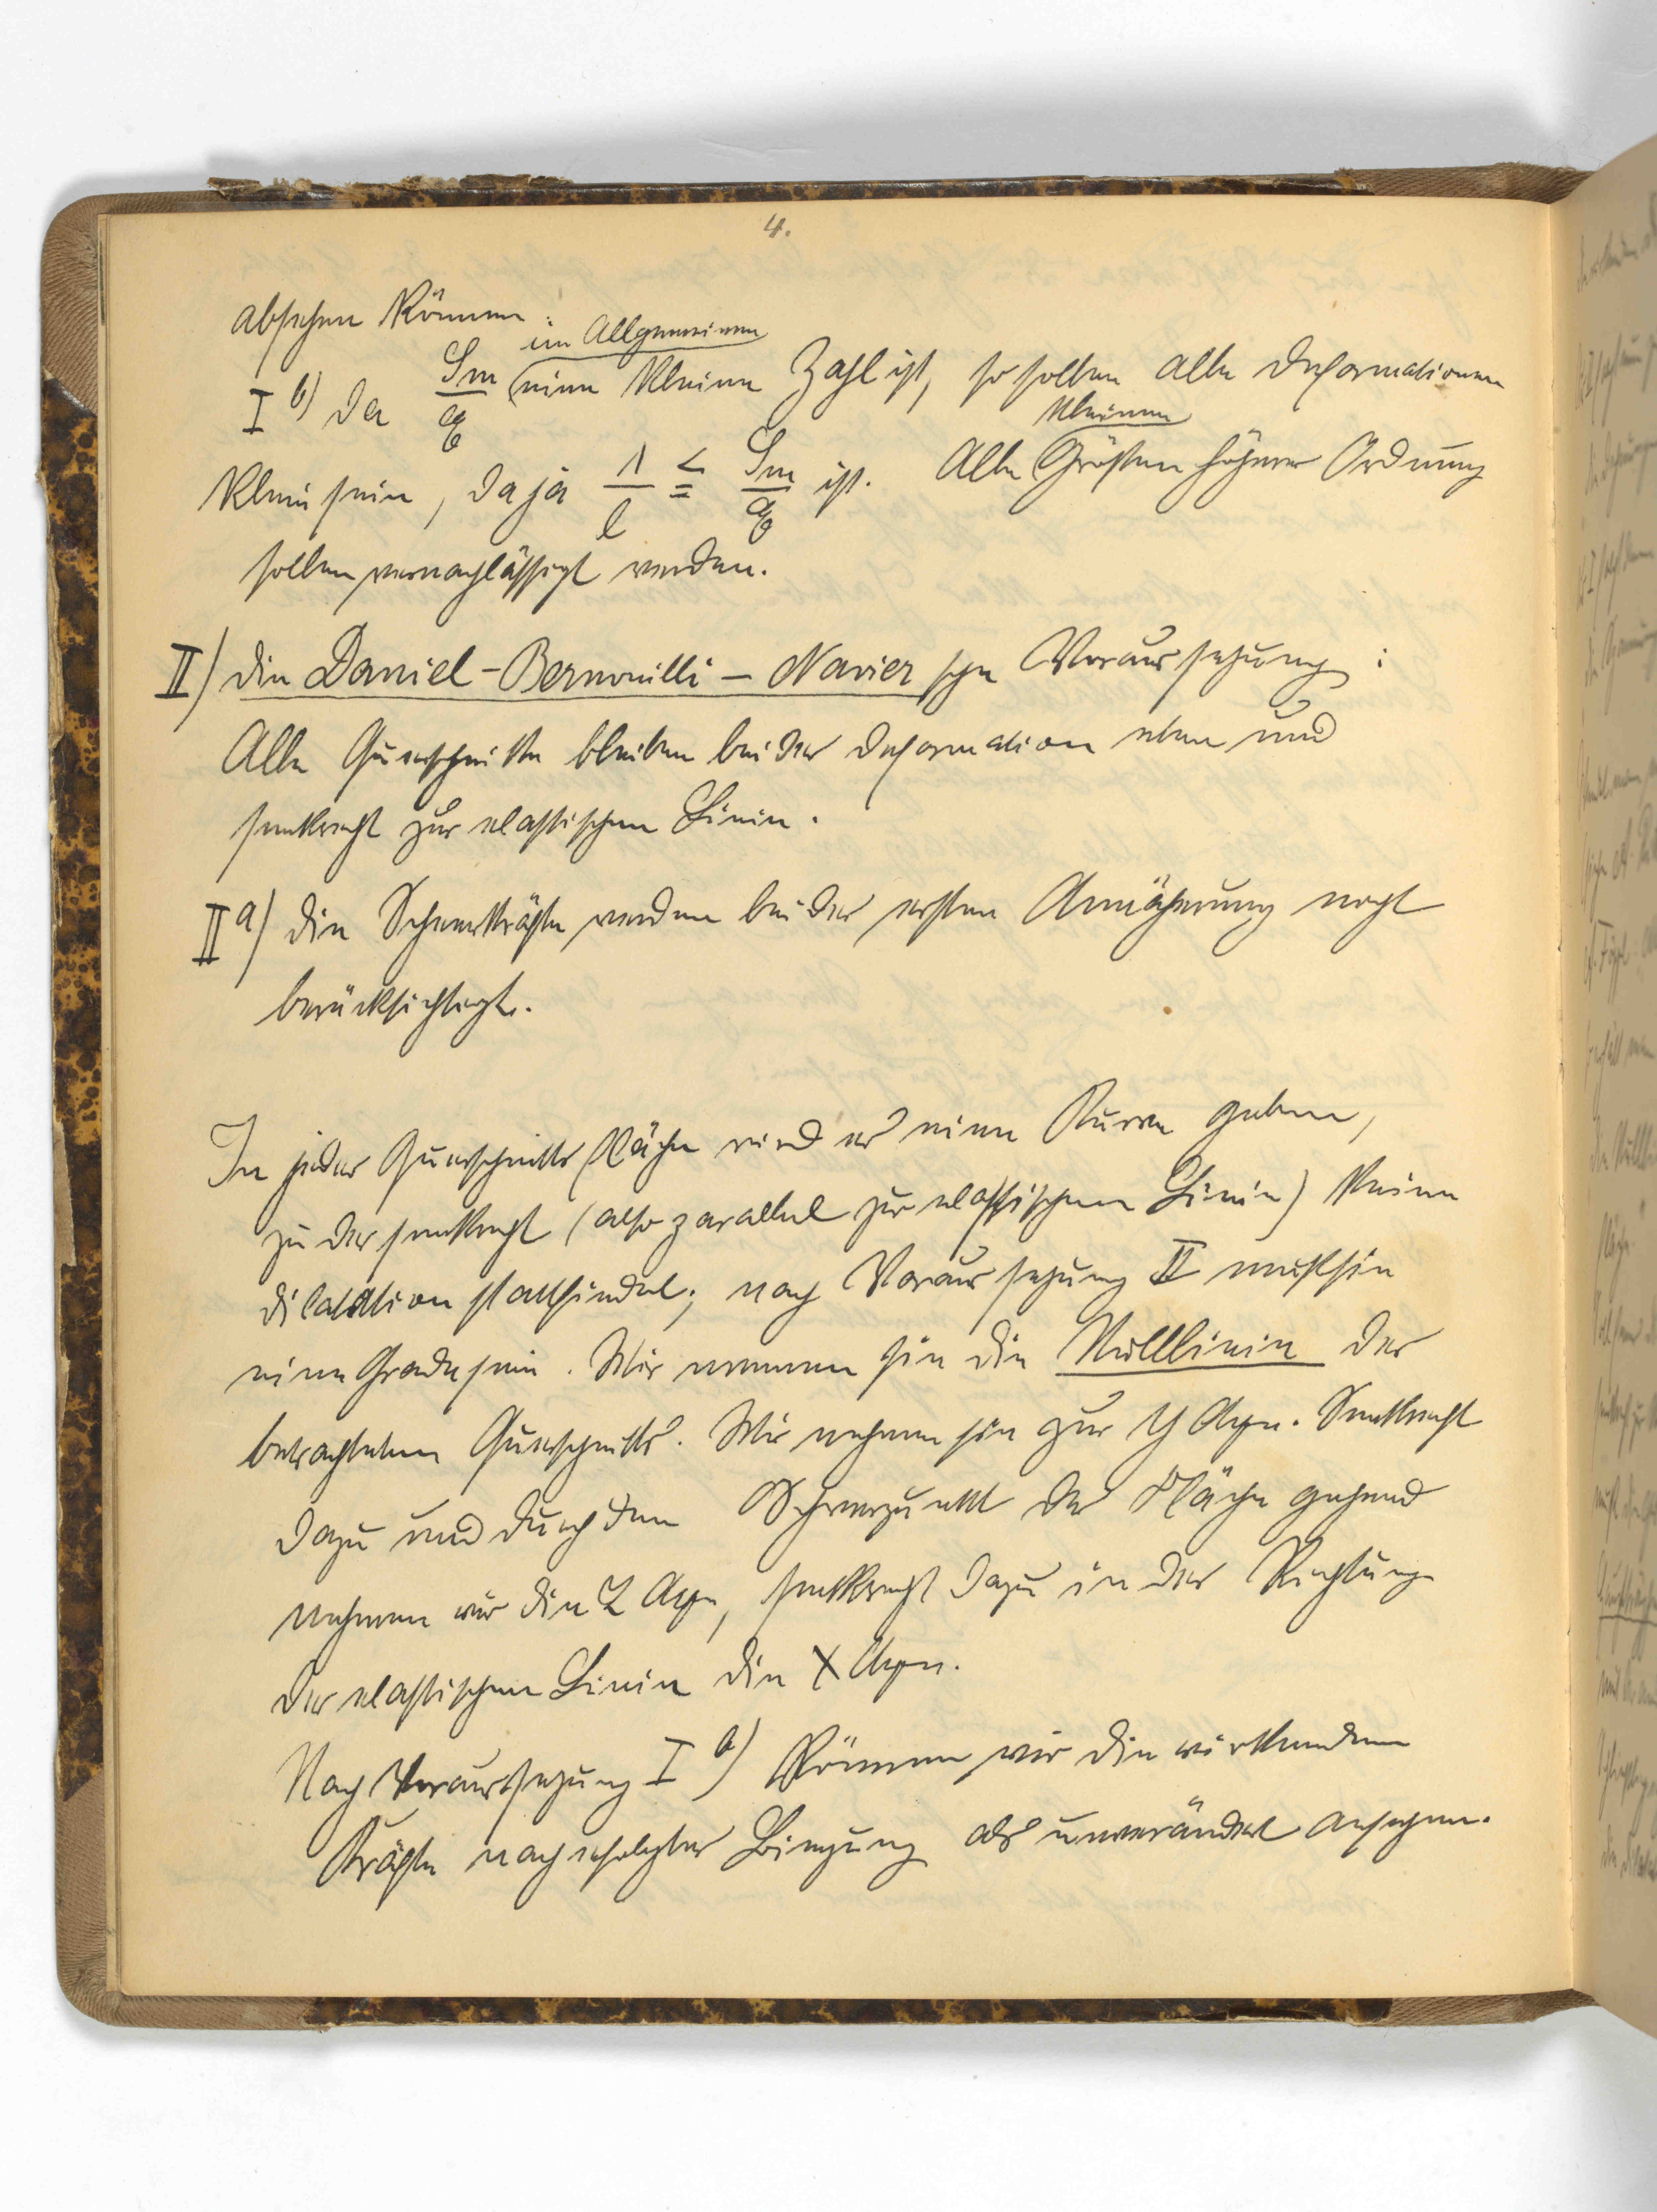 4.
absehen können.
im Allgemeinen
I b) Da Sm/E eine kleine Zahl ist, so sollen alle Deformationen
kleinen
klein sein, da ja λ/l ≦ Sm/E ist. Alle Größen höherer Ordnung
sollen vernachlässigt werden.
II) Die Daniel-Bernouilli-Navier sche Voraussetzung:
Alle Querschnitte bleiben bei der Deformation eben und
senkrecht zur elastischen Linie.
II a) Die Scheerkräfte werden bei der ersten Annäherung nicht
berücksichtigt.
In jeder Querschnittsfläche wird es eine Kurve geben,
zu der senkrecht (also parallel zur elastischen Linie) keine
Dilatation stattfindet; nach Voraussetzung II muß sie
eine Grade sein. Wir nennen sie die Nulllinie des
betrachteten Querschnitts. Wir nehmen sie zur Y Axe. Senkrecht
dazu und durch den Schwerpunkt der Fläche gehend
nehmen wir die Z Axe, senkrecht dazu in der Richtung
der elastischen Linie die X Axe.
Nach Voraussetzung I b) können wir die wirkenden
Kräfte nach erfolgter Biegung als unverändert ansehen.